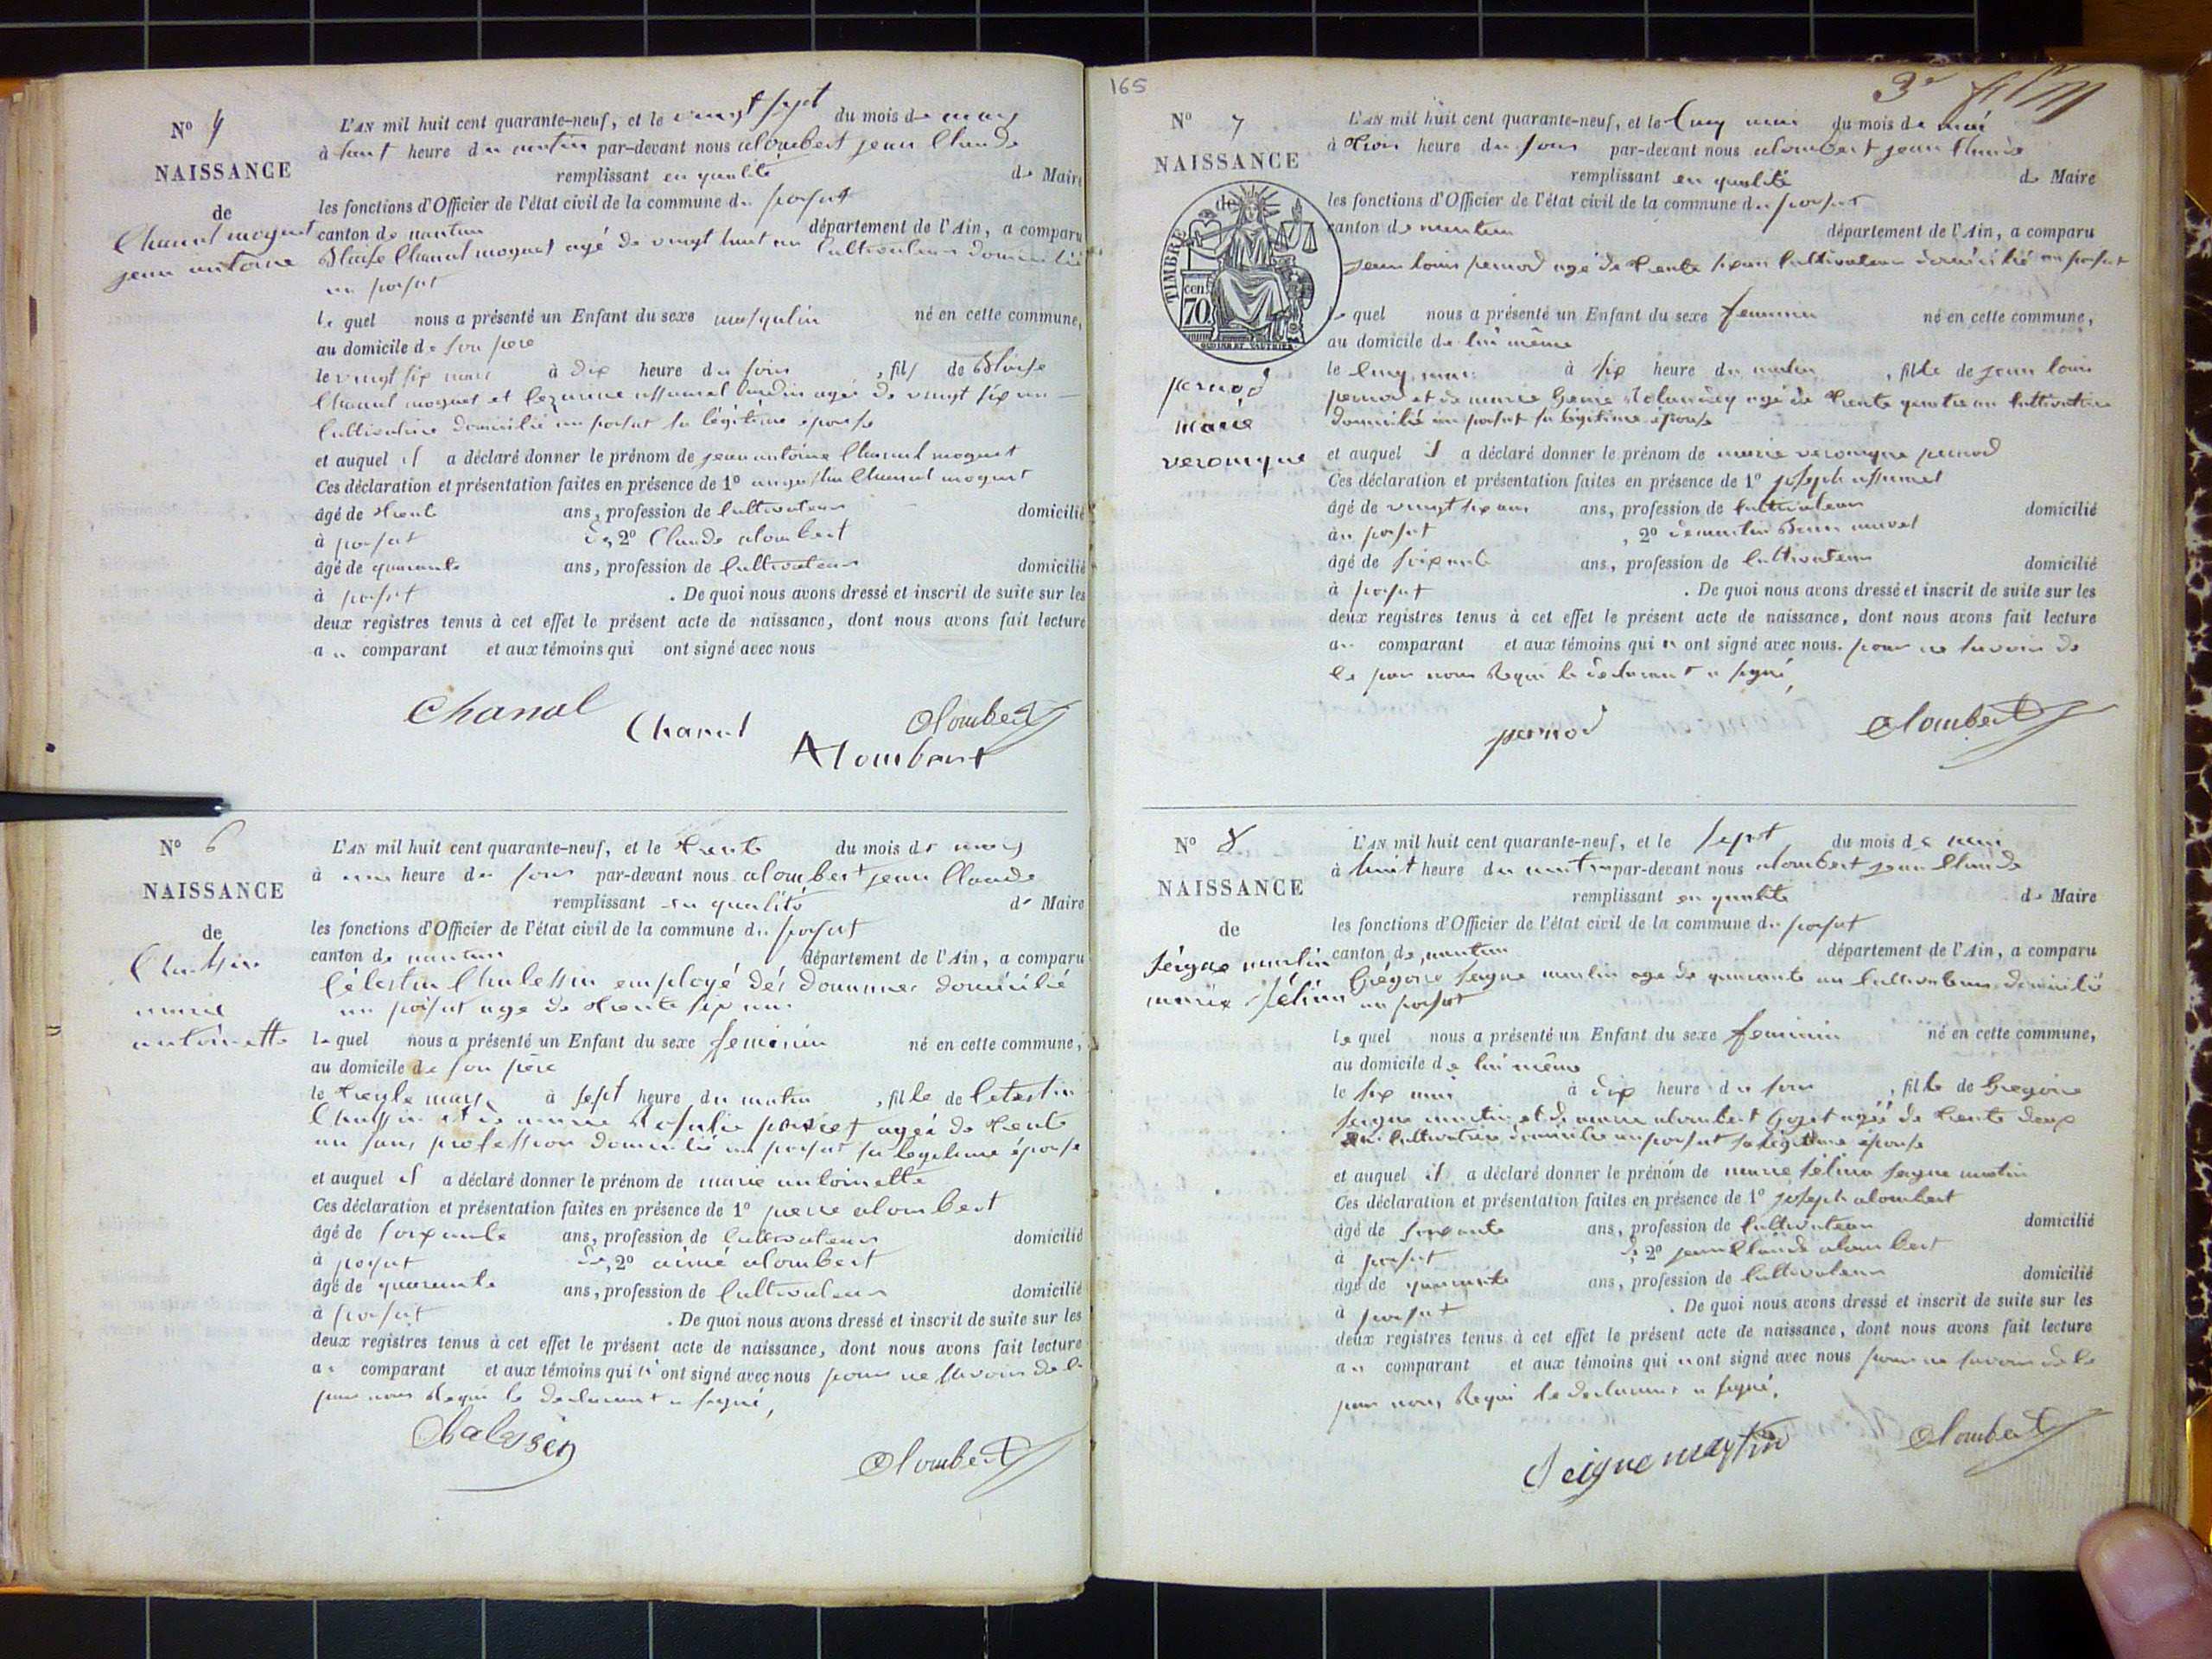 N° 4
NAISSANCE
de
Chanal moguet
jean antoine
L'AN mil huit cent quarante-neuf, et le vingt sept du mois de mars
à huit heure du matin par-devant nous alombert jean Claude
remplissant en qualité de Maire
les fonctions d'Officier de l'état civil de la commune du poisat
canton de nantua département de l'Ain, a comparu
Blaise Chanal moguet agé de vingt huit an Cultivateur domicilié
au poisat
le quel nous a présenté un Enfant du sexe masqulin né en cette commune,
au domicile de son père
le vingt six mars à dix heure du soir , fils de Blaise
Chanal moguet et assumel agée de vingt six an
Cultivatrice domicilié au poisat sa légitime épouse
et auquel il a déclaré donner le prénom de jean antoine Chanal moguet
Ces déclaration et présentation faites en présence de 1° Chanal moguet
âgé de trente ans, profession de Cultivateur domicilié
à poisat , 2° Claude alombert
âgé de quarante ans, profession de Cultivateur domicilié
à poisat . De quoi nous avons dressé et inscrit de suite sur les
deux registres tenus à cet effet le présent acte de naissance, dont nous avons fait lecture
au comparant et aux témoins qui ont signé avec nous
Chanal
Chanal
Alombert
Alombert
N° 6
NAISSANCE
de
marie
antoinette
L'AN mil huit cent quarante-neuf, et le trente du mois de mars
à une heure du soir par-devant nous alombert jean Claude
remplissant en qualité de Maire
les fonctions d'Officier de l'état civil de la commune du poisat
canton de nantua département de l'Ain, a comparu
Célestin Chalessin employé dés Douannes domicilié
au poisat age de trente six ans
le quel nous a présenté un Enfant du sexe feminin né en cette commune,
au domicile de son père
le trente mars à sept heure du matin , fille de Celestin
et de marie Rosalie agée de trente
an sans profession domicilié au poisat sa legitime épouse
et auquel il a déclaré donner le prénom de marie antoinette
Ces déclaration et présentation faites en présence de 1° pierre alombert
âgé de soixante ans, profession de Cultivateur domicilié
à poisat , 2° aimé alombert
âgé de quarante ans, profession de Cultivateur domicilié
à poisat . De quoi nous avons dressé et inscrit de suite sur les
deux registres tenus à cet effet le présent acte de naissance, dont nous avons fait lecture
au comparant et aux témoins qui n'ont signé avec nous pour ne savoir de le
par nous Requi le declarant a signé,
Chalessin
Alombert
165
3e
N° 7
NAISSANCE
de
TIMBRE
70 cen.
pernod
marie
veronique
L'AN mil huit cent quarante-neuf, et le Cinq mai du mois de mai
à trois heure du soir par-devant nous alombert jean Claude
remplissant en qualité de Maire
les fonctions d'Officier de l'état civil de la commune du poisat
canton de nantua département de l'Ain, a comparu
jean louis pernod agé de trente six an Cultivateur domicilié au poisat
le quel nous a présenté un Enfant du sexe feminin né en cette commune,
au domicile de lui même
le Cinq mai à six heure du matin , fille de jean louis
pernod et de marie agé de trente quatre an Cultivatrice
domicilié au poisat sa légitime épouse
et auquel il a déclaré donner le prénom de marie veronique pernod
Ces déclaration et présentation faites en présence de 1° joseph assumel
âgé de vingt six ans ans, profession de Cultivateur domicilié
au poisat , 2°
âgé de soixante ans, profession de Cultivateur domicilié
à poisat . De quoi nous avons dressé et inscrit de suite sur les
deux registres tenus à cet effet le présent acte de naissance, dont nous avons fait lecture
au comparant et aux témoins qui n ont signé avec nous. pour ne savoir de
le par nous Requi le déclarant a signé,
pernod
Alombert
N° 8
NAISSANCE
de
Seigne martin
marie Séline
L'AN mil huit cent quarante-neuf, et le sept du mois de mai
à huit heure du matin par-devant nous alombert jean Claude
remplissant en qualité de Maire
les fonctions d'Officier de l'état civil de la commune du poisat
canton de nantua département de l'Ain, a comparu
Grégoire Seigne martin age de quarante an Cultivateur domicilié
au poisat
le quel nous a présenté un Enfant du sexe feminin né en cette commune,
au domicile de lui même
le six mai à dix heure du soir , fille de Gregoire
Seigne martin et de marie alombert Gojet agée de trente deux
an Cultivatrice domicilié au poisat sa légitime épouse
et auquel il a déclaré donner le prénom de marie Séline Seigne martin
Ces déclaration et présentation faites en présence de 1° joseph alombert
âgé de soixante ans, profession de Cultivateur domicilié
à poisat , 2° jean Claude alombert
âgé de quarante ans, profession de Cultivateur domicilié
à poisat . De quoi nous avons dressé et inscrit de suite sur les
deux registres tenus à cet effet le présent acte de naissance, dont nous avons fait lecture
au comparant et aux témoins qui n ont signé avec nous pour ne savoir de le
par nous Requi le declarant a signé,
Seigne martin
Alombert